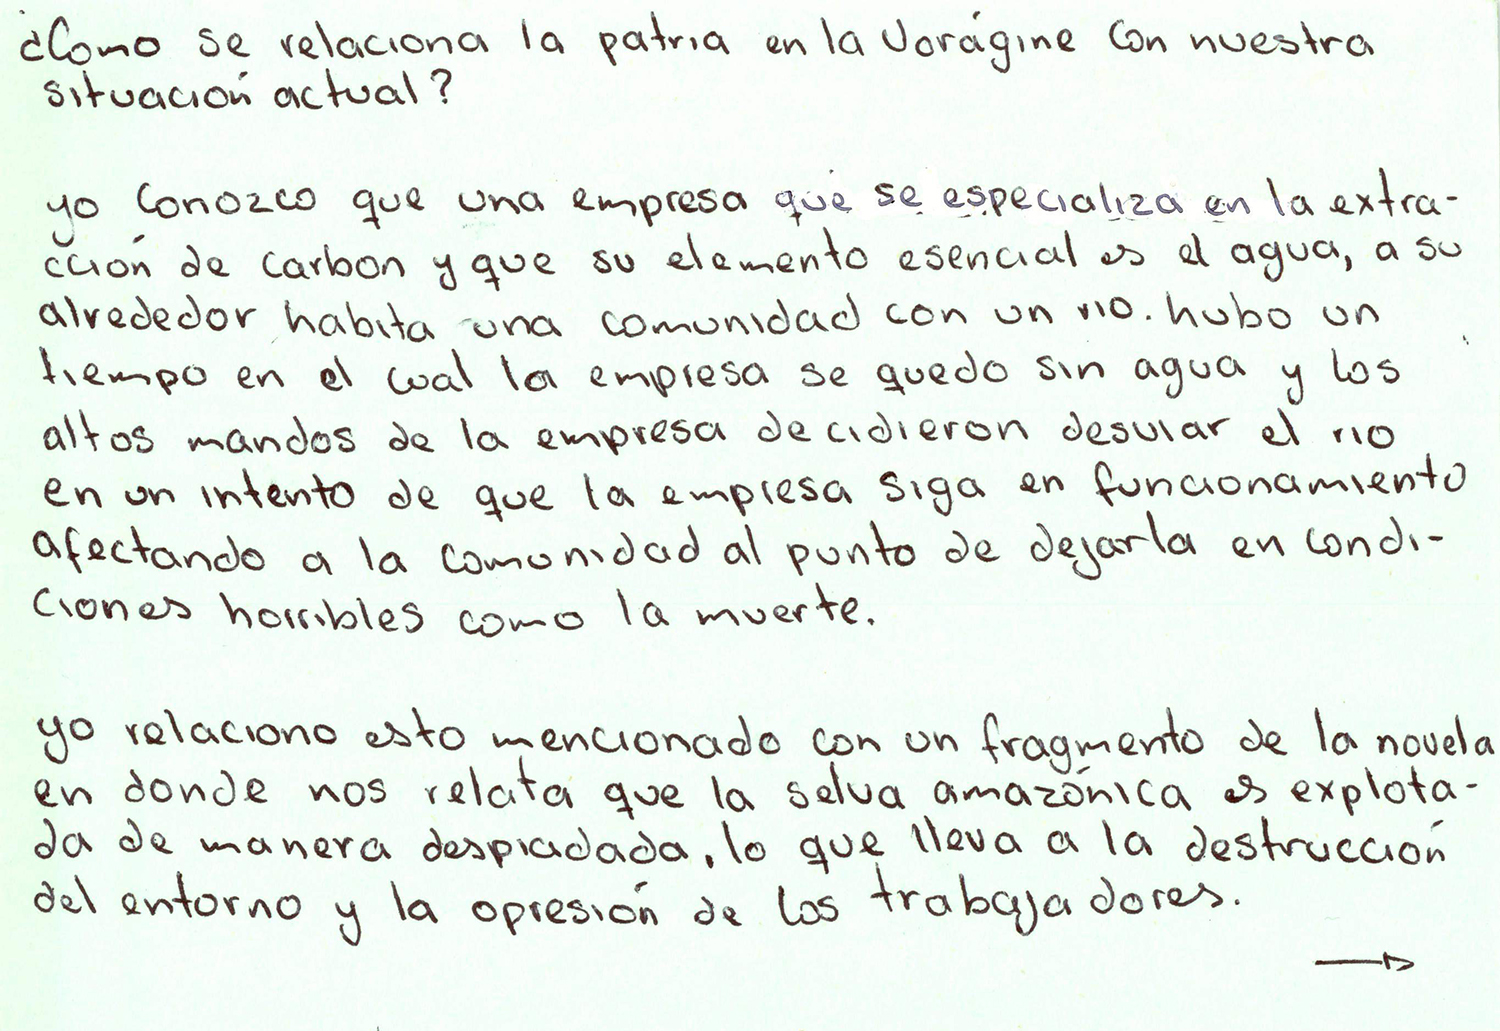 ¿Como se relaciona la patria en la Vorágine con nuestra
situación actual?
yo conozco que una empresa que se especializa en la extra-
cción de carbon y que su elemento esencial es el agua, a su
alrededor habita una comunidad con un rio. hubo un
tiempo en el cual la empresa se quedo sin agua y los
altos mandos de la empresa decidieron desviar el rio
en un intento de que la empresa siga en funcionamiento
afectando a la comunidad al punto de dejarla en condi-
ciones horribles como la muerte.
yo relaciono esto mencionado con un fragmento de la novela
en donde nos relata que la selva amazónica es explota-
da de manera despiadada, lo que lleva a la destrucción
del entorno y la opresión de los trabajadores.